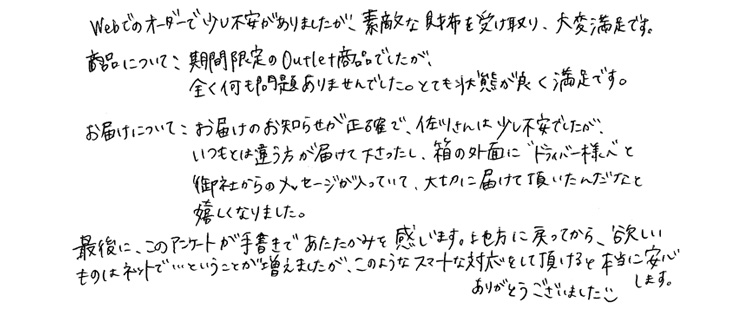 Webでのオーダーで少し不安がありましたが、素敵な財布を受け取り、大変満足です。
商品について：期間限定のOutlet商品でしたが、
全く何も問題ありませんでした。とても状態が良く満足です。
お届けについて：お届けのお知らせが正確で、佐川さんは少し不安でしたが、
いつもとは違う方が届けて下さったし、箱の外面に"ドライバー様へ"と
御社からのメッセージが入っていて、大切に届けて頂いたんだなと
嬉しくなりました。
最後に、このアンケートが手書きであたたかみを感じます。地方に戻ってから、欲しい
ものはネットで…ということが増えましたが、このようなスマートな対応をして頂けると本当に安心
します。
ありがとうございました